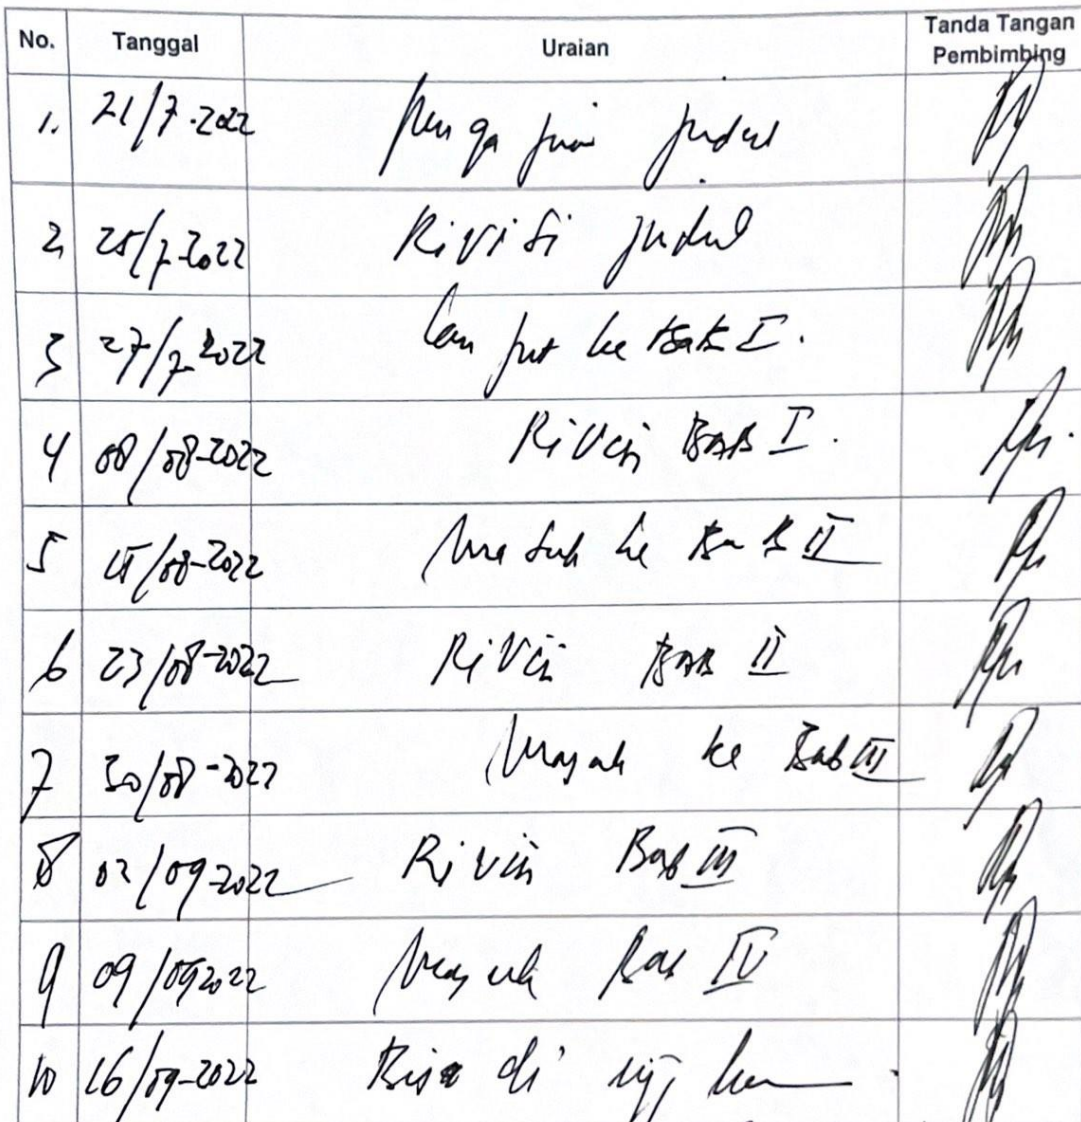 No. Tanggal Uraian Tanda Tangan Pembimbing
1. 21/7-2022 Pengajuan judul
2. 25/7-2022 Rivisi judul
3 27/7-2022 Lanjut ke Bab I.
4 08/08-2022 Rivisi BAB I.
5 15/08-2022 Masuk ke Bab II
6 23/08-2022 Rivisi BAB II
7 30/08-2022 Masuk ke Bab III
8 02/09-2022 Rivisi Bab III
9 09/09 2022 Masuk Bab IV
10 16/09-2022 Bisa di ujikan